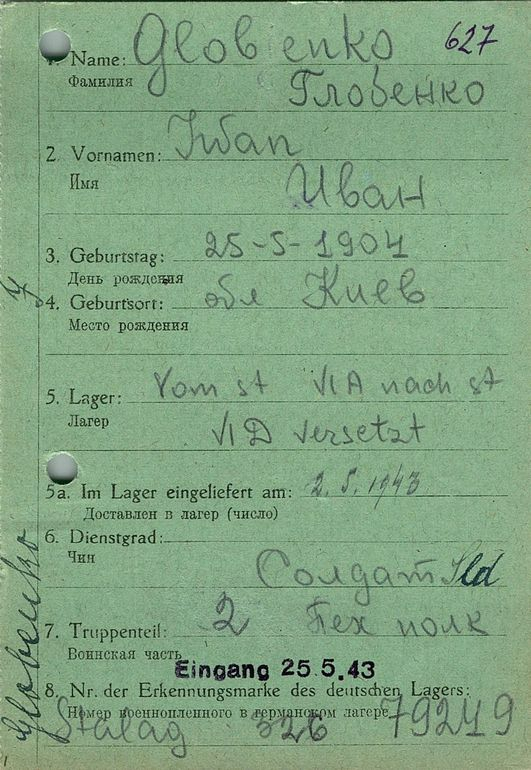 627
1. Name: Globenko
Фамилия Глобенко
2. Vornamen: Iwan
Имя Иван
3. Geburtstag: 25-5-1904
День рождения
4. Geburtsort: обл Киев
Место рождения
5. Lager: Vom st VI A nach st
Лагер VI D versetzt
5a. Im Lager eingeliefert am: 2.5.1943
Доставлен в лагер (число)
6. Dienstgrad:
Чин Солдат Sld
7. Truppenteil: 2 Пех полк
Воинская часть
Eingang 25.5.43
8. Nr. der Erkennungsmarke des deutschen Lagers:
Номер военнопленного в германском лагере
Stalag 326 79249
Globenko